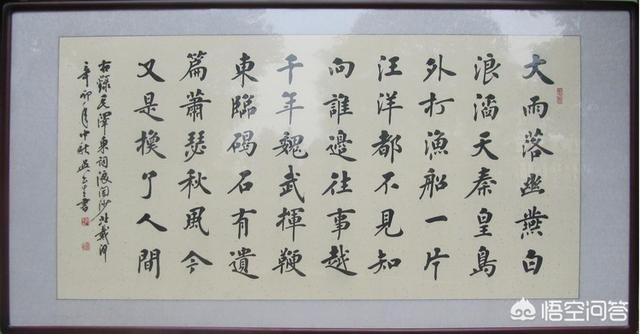 大雨落幽燕白
浪滔天秦皇島
外打漁船一片
汪洋都不見知
向誰邊往事越
千年魏武揮鞭
東臨碣石有遺
篇蕭瑟秋風今
又是換了人間
右錄毛澤東詞浪淘沙北戴河
辛卯年中秋吳書
悟空问答